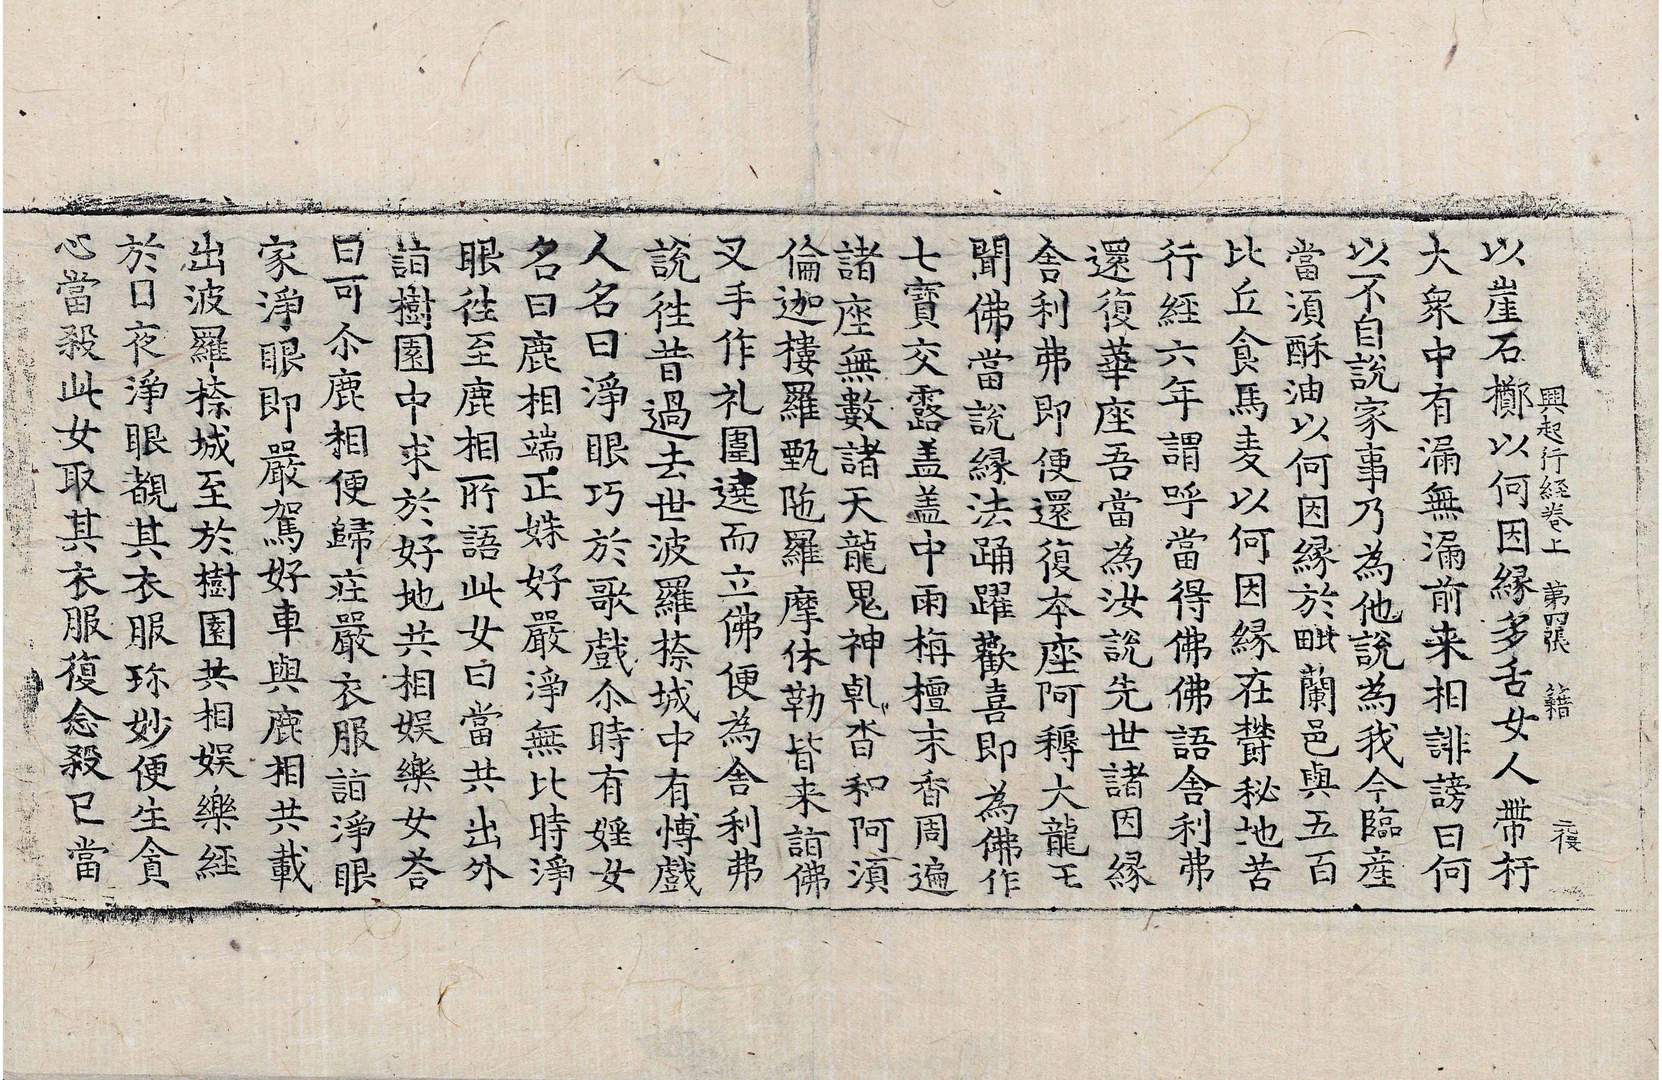 興起行経卷上 第四張 籍 二復
以崖石擲以何因縁多舌女人帶杅
大衆中有漏無漏前来相誹謗曰何
以不自說家事乃為他說為我今臨産
當湏酥油以何因縁於毗蘭邑與五百
比丘食馬麦以何因縁在欝秘地苦
行經六年謂呼當得佛佛語舍利弗
還復華座吾當為汝說先世諸因縁
舍利弗即便還復本座阿耨大龍王
聞佛當說縁法踊躍歡喜即為佛作
七寶交露盖盖中雨栴檀末香周遍
諸座無數諸天龍鬼神乹沓和阿湏
倫迦樓羅甄陁羅摩休勒皆来詣佛
叉手作礼圍遶而立佛便為舍利弗
說徃昔過去世波羅㮈城中有博戲
人名曰淨眼巧於歌戲尒時有婬女
名曰鹿相端正姝好嚴淨無比時淨
眼徃至鹿相所語此女曰當共出外
詣樹園中求於好地共相娱樂女荅
曰可尒鹿相便歸莊嚴衣服詣淨眼
家淨眼即嚴駕好車與鹿相共載
出波羅㮈城至於樹園共相娱樂經
於日夜淨眼覩其衣服珎妙便生貪
心當殺此女取其衣服復念殺已當